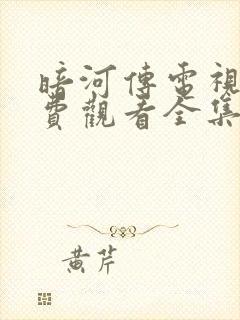 暗河傳電視
費觀看全集
黄芹